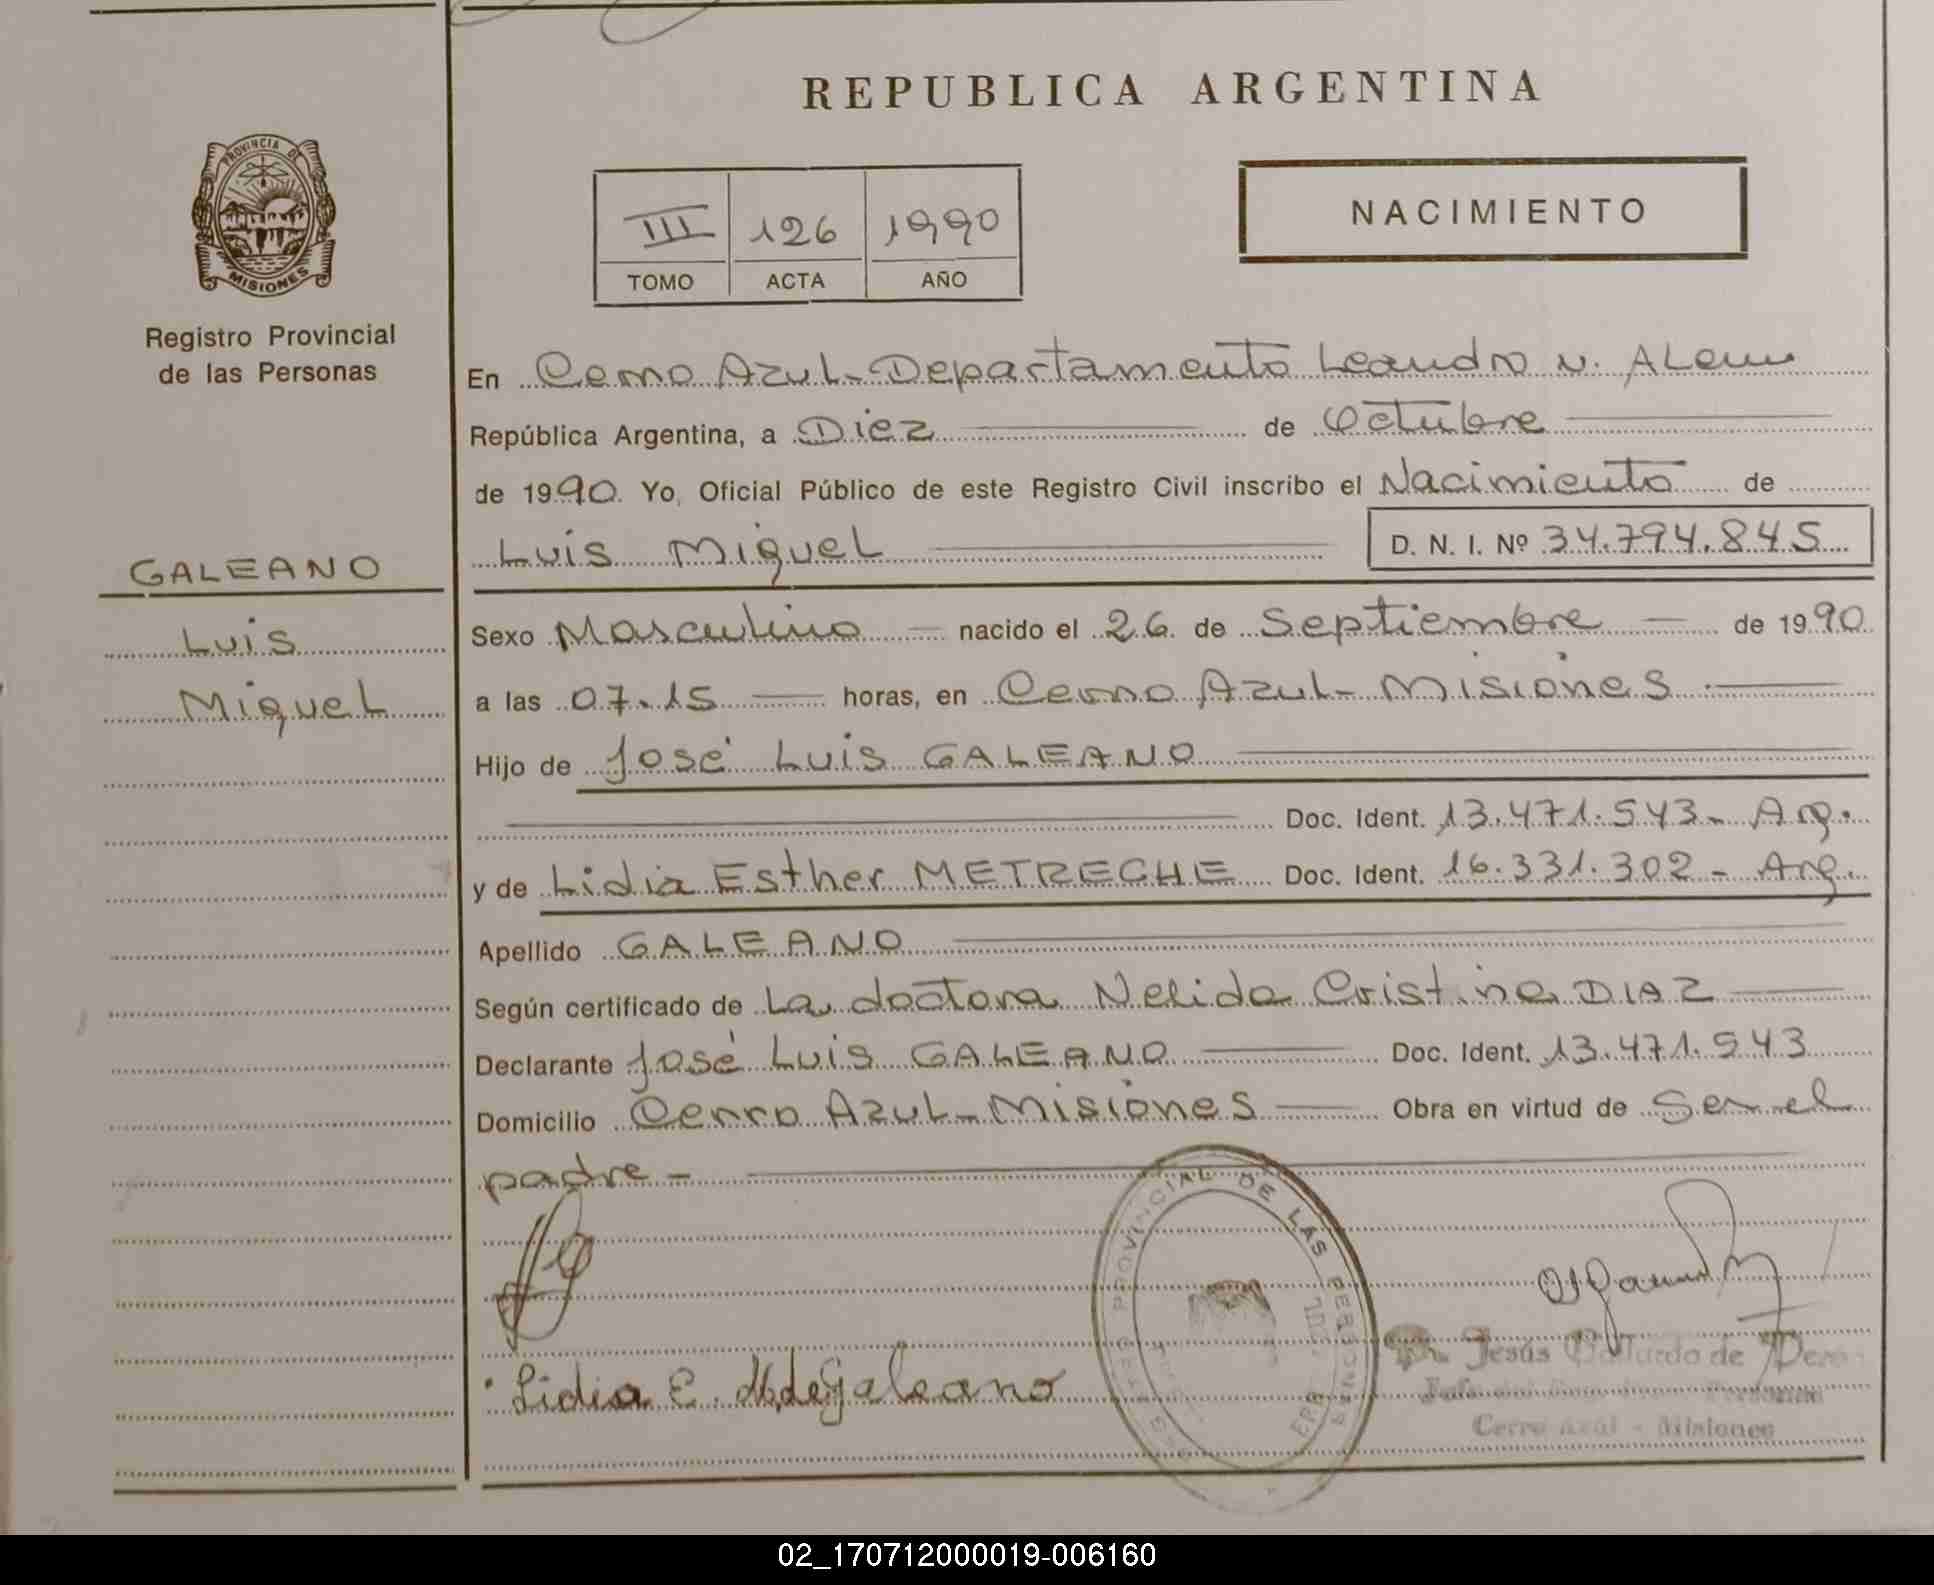 REPUBLICA ARGENTINA
PROVINCIA DE
MISIONES
Registro Provincial
de las Personas
III 126 1990
TOMO ACTA AÑO
NACIMIENTO
GALEANO
Luis
Miguel
En Cerro Azul - Departamento Leandro N. Alem
República Argentina, a Diez de Octubre
de 1990 Yo, Oficial Público de este Registro Civil inscribo el Nacimiento de
Luis Miguel D. N. I. Nº 34.794.845
Sexo Masculino nacido el 26 de Septiembre de 1990
a las 07.15 horas, en Cerro Azul - Misiones
Hijo de José Luis GALEANO
Doc. Ident. 13.471.543 - Arg.
y de Lidia Esther METRECHE Doc. Ident. 16.331.302 - Arg.
Apellido GALEANO
Según certificado de La doctora Nelida Cristina DIAZ
Declarante José Luis GALEANO Doc. Ident. 13.471.543
Domicilio Cerro Azul - Misiones Obra en virtud de Ser el
padre -
PROVINCIAL DE LAS PERSONAS
Lidia E. M. de Galeano
Jesús de
Cerro Azul - Misiones
02_170712000019-006160